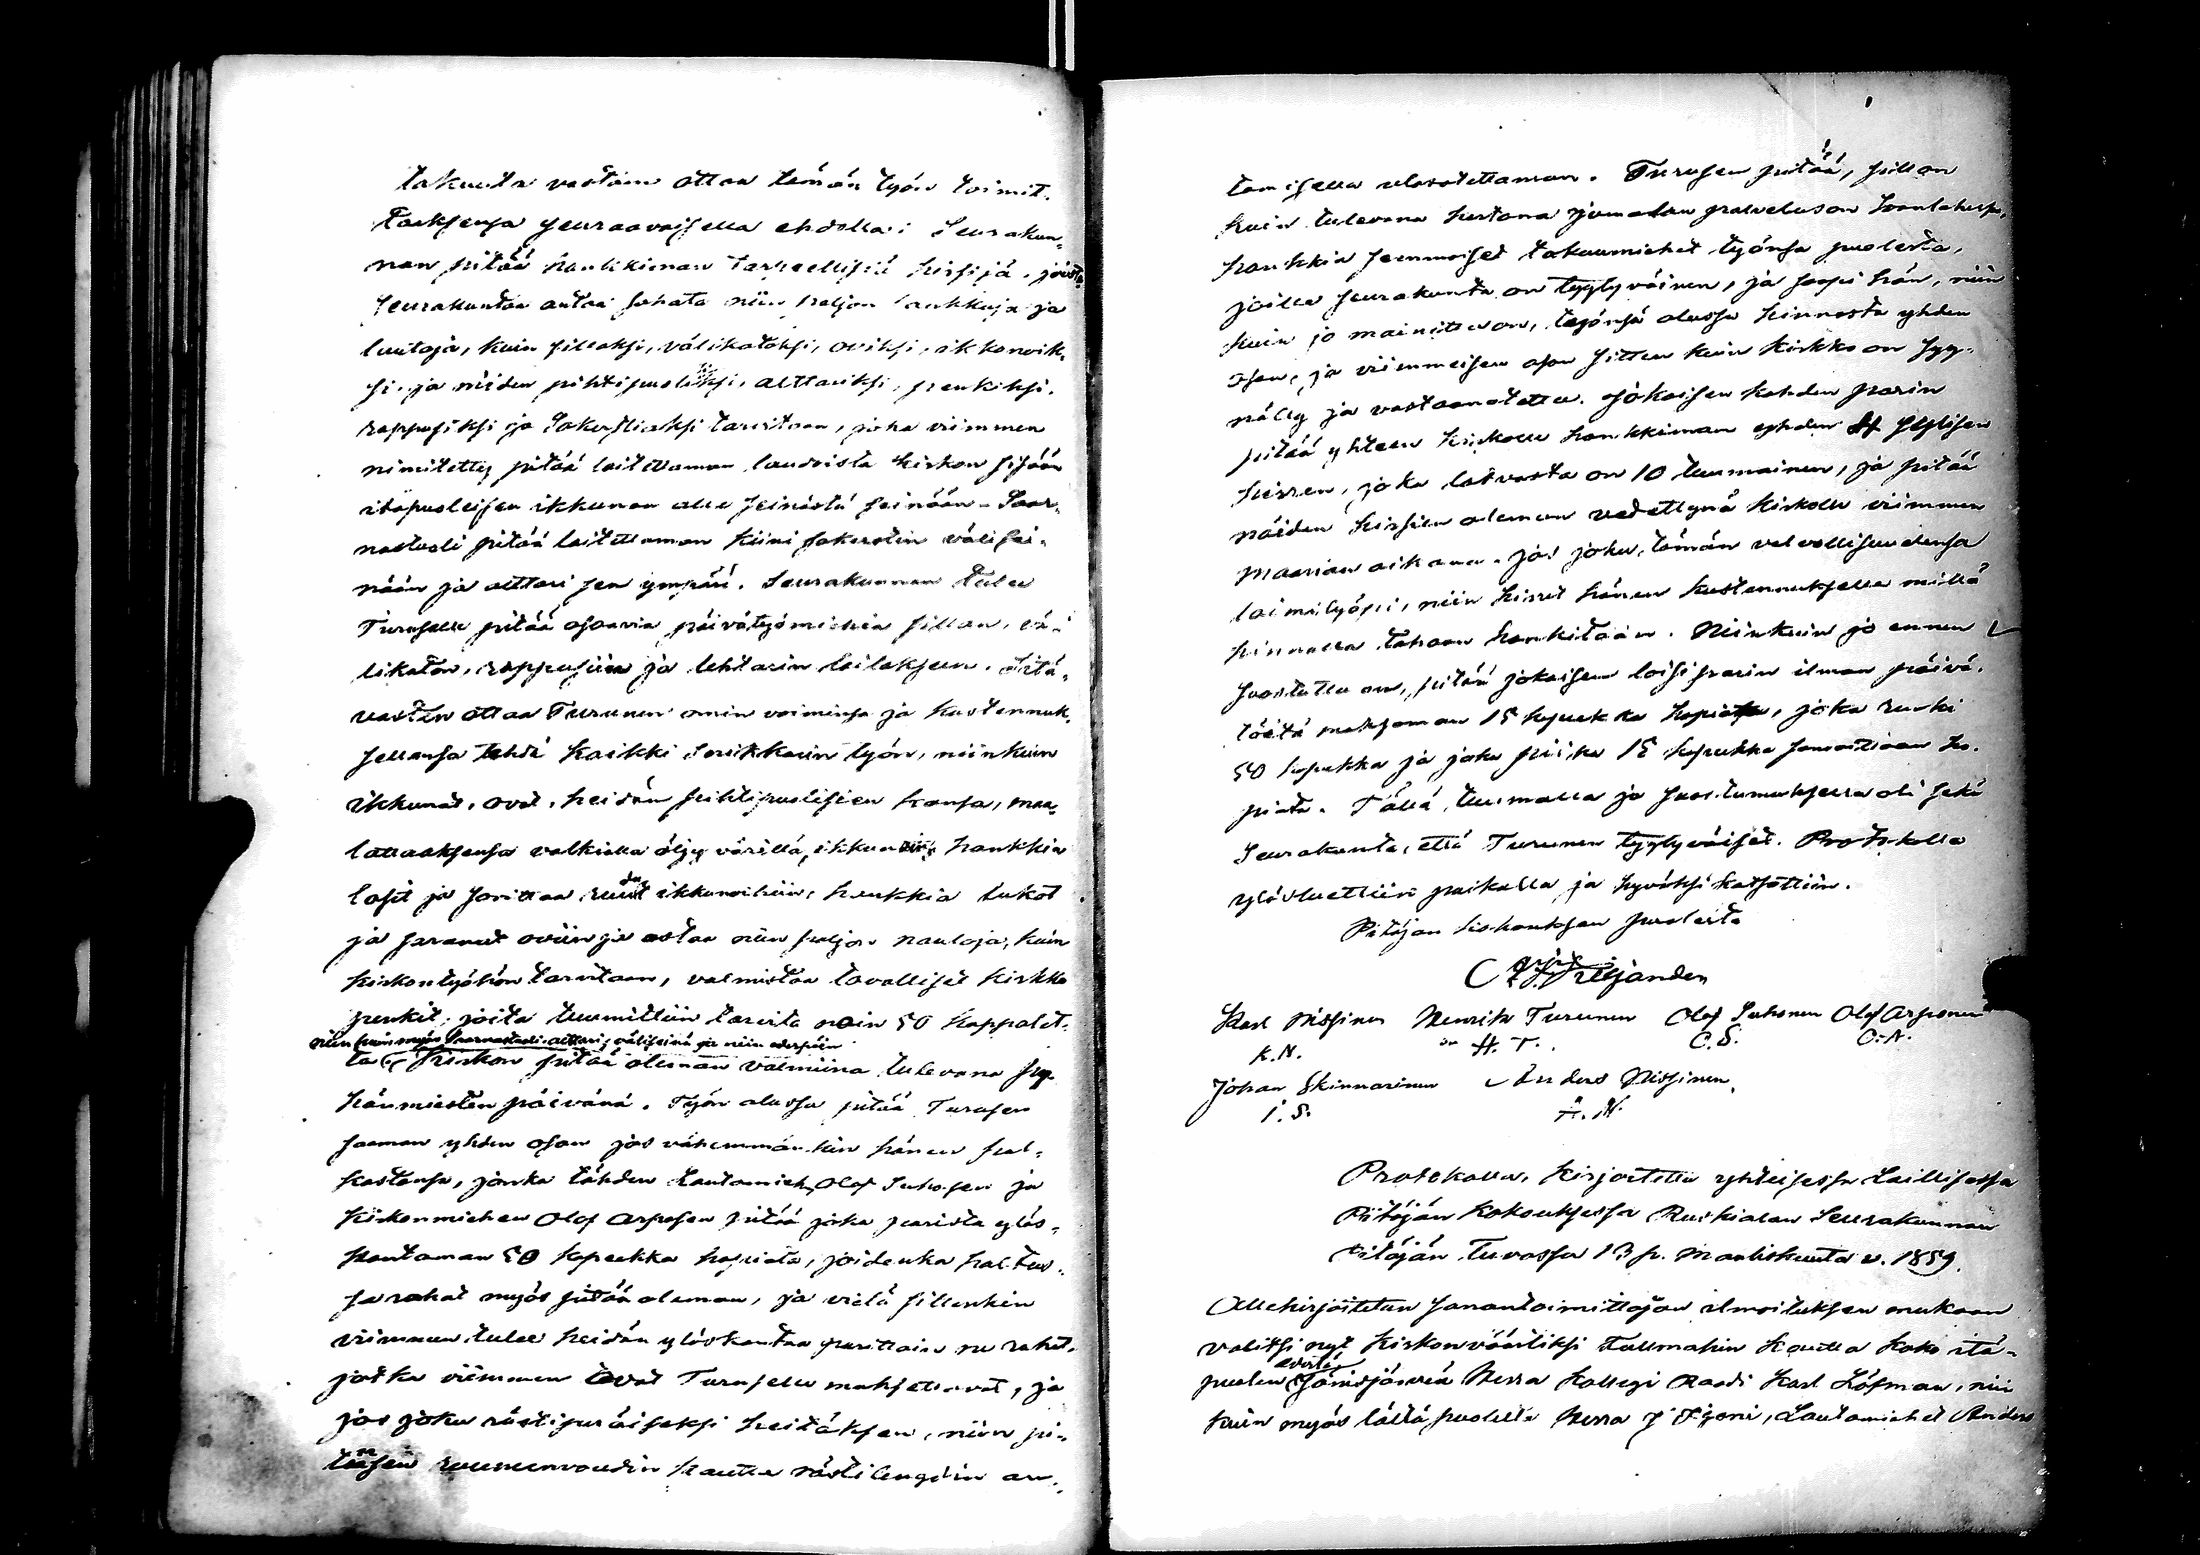 takuuta vastaan ottaa tämän työn toimit-
taaksensa seuraavaisella ehdolla: Seurakun-
nan pitää hankkiman tarpeellisiä hirsijä, joista
seurakunta antaa sahata niin paljon lankkuja ja
lautoja, kuin sillaksi, välikatoksi, oviksi, ikkunoik-
si, ja niiden pihtipuoliksi, alttariksi, penkiksi,
rappusiksi ja Sakerstiaksi tarvitaan, joka viimmen
nimitetty pitää laitettaman laudoista kirkon sisään
itäpuoleisen ikkunan alle seinästä seinään. Saar-
nastuoli pitää laitettaman kiini sakerstin välisei-
nään ja alttari sen ympäri. Seurakunnan tulee
Turuselle pitää osaavia päivätyömiehiä sillan, vä-
likaton, rappusiin ja lehtarin laitokseen. Sitä-
vasten ottaa Turunen omin voiminsa ja kustannuk-
sellansa tehdä kaikki Snikkarin työn, niinkuin
ikkunat, ovet, heidän pihtipuolisien kansa, maa-
lataaksensa valkialla öljy värillä, ikkunoin hankkia
lasit ja sovittaa ruudut ikkunoihin, hankkia lukot
ja saranat oviin ja ostaa niin paljon nauloja, kuin
kirkontyöhön tarvitaan, valmistaa tavalliset kirkko
penkit, joita tuumittiin tarvita noin 50 kappalet-
niin kuin myös Saarnastuoli, alttari, väliseinä ja niin edespäin
ta. Kirkon pitää oleman valmiina tulevana Py-
hänmiesten päivänä. Työn alussa pitää Turusen
saaman yhden osan jos vähemmänkin hänen pal-
kastansa, jonka tähden Lautamieh. Olof Suhosen ja
Kirkonmiehen Olof Arposen pitää joka parista ylös-
kantaman 50 kopeekka hopiata, joidenka
sa rahat myös pitää oleman, ja vielä sillenkin
viimmen tulee heidän ylöskantaa parittain ne rahat,
jotka viimmen tovat Turuselle maksettavat, ja
jos joku rästipäräiseksi heitäksen, niin pi-
tänsen ruununvoudin kautta rästi lengdin an-
tamisella ulosotettaman. Turusen pitää, sillon
kuin tulevana kertana jumalan palvelus on Soanlahessa,
hankkia semmoiset takuumiehet työnsä puolesta,
joille seurakunta on tyytyväinen, ja saapi hän, niin
kuin jo mainittu on, työnsä alussa hinnasta yhden
osan, ja viimmeisen osan sitten kuin kirkko on syy-
nätty ja vastaanotettu. Jokaisen kahden parin
pitää yhteen kirkolle hankkiman yhden syylisen
hirren, joka latvasta on 10 tuumainen, ja pitää
näiden hirsien oleman vedettynä kirkolle viimmen
Maarian aikana. Jos joku, tämän velvollisuudensa
laiminlyöpi, niin hirret hänen kustannuksella millä
hinnalla tahaan hankitaan. Niinkuin jo ennen
suostuttu on, pitää jokaisen loisiparin ilman päivä-
töitä maksaman 15 kopeekka hopiata, joka renki
50 kopeekka ja joka piika 15 kopeekka samatiaan ho-
piata. Tällä tuumalla ja suostumuksella oli sekä
Seurakunta, että Turunen tyytyväiset. Protokolla
ylösluettiin paikalla ja hyväksi katsottiin.
Pitäjän kokouksen puolesta
Karl Nissinen Henrik Turunen Olof Suhonen Olof Arponen
K. N. H. T. O. S. O. A.
Johan Skinnarinen Anders Nissinen
I. S. A. N.
Protokolla, kirjoitettu yhteisessä Laillisessa
Pitäjän Kokouksessa Ruskialan Seurakunnan
Pitäjän Tuvassa 13 p. Maaliskuuta v. 1859.
Allekirjoitetun sanantoimittajan ilmoituksen mukaan
valitsi nyt Kirkonväärtiksi Fallmahin koulla koko itä-
puolen Jänisjärveä Herra Kollegi Raadi Karl Löfman, niin
kuin myös tältä puolelta Herra J Figoni, Lautamiehet Anders